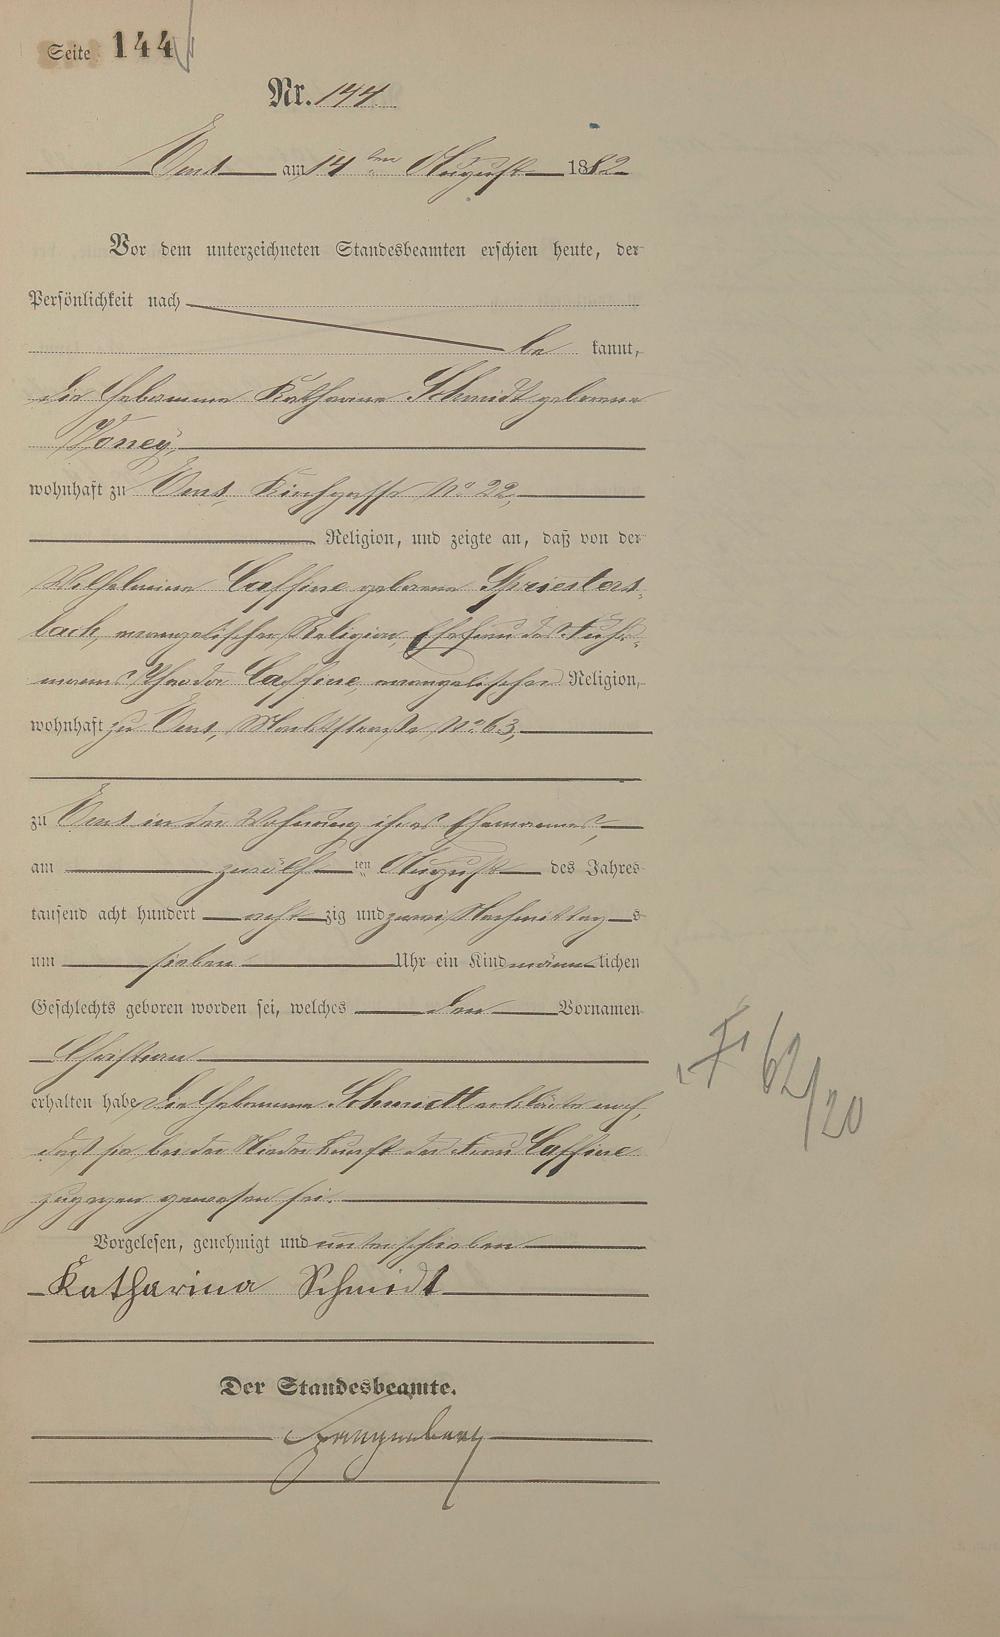 Seite 144
Nr. 144
Ems am 14ten August 1882
Vor dem unterzeichneten Standesbeamten erschien heute, der
Persönlichkeit nach
be kannt,
die Hebamme Katharina Schmidt geborene
wohnhaft zu Ems, Kirchgasse No 22,
Religion, und zeigte an, daß von der
Wilhelmine Caffine geborene Spriesters-
bach, evangelischer Religion, Ehefrau des Fuhr-
manns Theodor Caffine, evangelischer Religion,
wohnhaft zu Ems, Marktstraße No 63,
zu Ems in der Wohnung ihres Ehemannes,
am zwölften August des Jahres
tausend acht hundert acht zig und zwei Nachmittag s
um sieben Uhr ein Kind männlichen
Geschlechts geboren worden sei, welches den Vornamen
Christian
erhalten habe. Die Hebamme Schmidt erklärte noch,
daß sie bei der Niederkunft der Frau Caffine
zugegen gewesen sei.
Vorgelesen, genehmigt und unterschrieben
Katharina Schmidt
Der Standesbeamte.
62/20